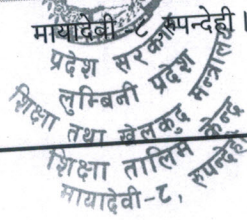 मायादेवी -८ रुपन्देही ।
प्रदेश सरकार
लुम्बिनी प्रदेश
शिक्षा तथा खेलकुद मन्त्रालय
शिक्षा तालिम केन्द्र
मायादेवी-८, रुपन्देही